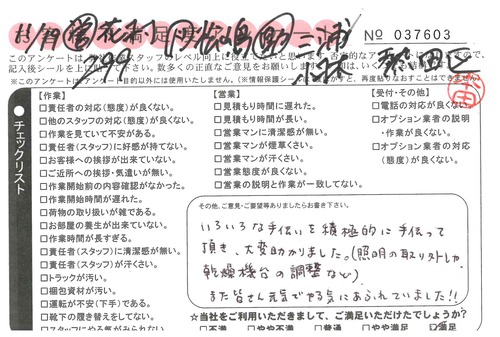 No 037603
このアンケートは
記入後シールを上
(※このアンケートはアンケート目的以外には使用いたしません。)(※情報保護シール
再度貼りなおすことはできません
チェックリスト
【作業】
□責任者の対応(態度)が良くない。
□他のスタッフの対応(態度)が良くない。
□作業を見ていて不安がある。
□責任者(スタッフ)に好感が持てない。
□お客様への挨拶が出来ていない。
□ご近所への挨拶・気遣いが無い。
□作業開始前の内容確認がなかった。
□作業開始時間が遅れた。
□荷物の取り扱いが雑である。
□お部屋の養生が出来ていない。
□作業時間が長すぎる。
□責任者(スタッフ)に清潔感が無い。
□責任者(スタッフ)が汗くさい。
□トラックが汚い。
□梱包資材が汚い。
□運転が不安(下手)である。
□靴下の履き替えをしてない。
□スタッフにやる気がみられない
【営業】
□見積もり時間に遅れた。
□見積もり時間が長い。
□営業マンに清潔感が無い。
□営業マンが煙草くさい。
□営業マンが汗くさい。
□営業態度が良くない。
□営業の説明と作業が一致してない。
【受付・その他】
□電話の対応が良くない
□オプション業者の説明
・作業が良くない。
□オプション業者の対応
(態度)が良くない。
その他、ご意見・ご要望等ありましたらお書き下さい。
いろいろな手伝いを積極的に手伝って
頂き、大変助かりました。(照明の取り外しや
乾燥機台の調整など)
また皆さん元気でやる気にあふれていました!!
☆当社をご利用いただきまして、ご満足いただけたでしょうか?
□不満 □やや不満 □普通 □やや満足 ☑満足